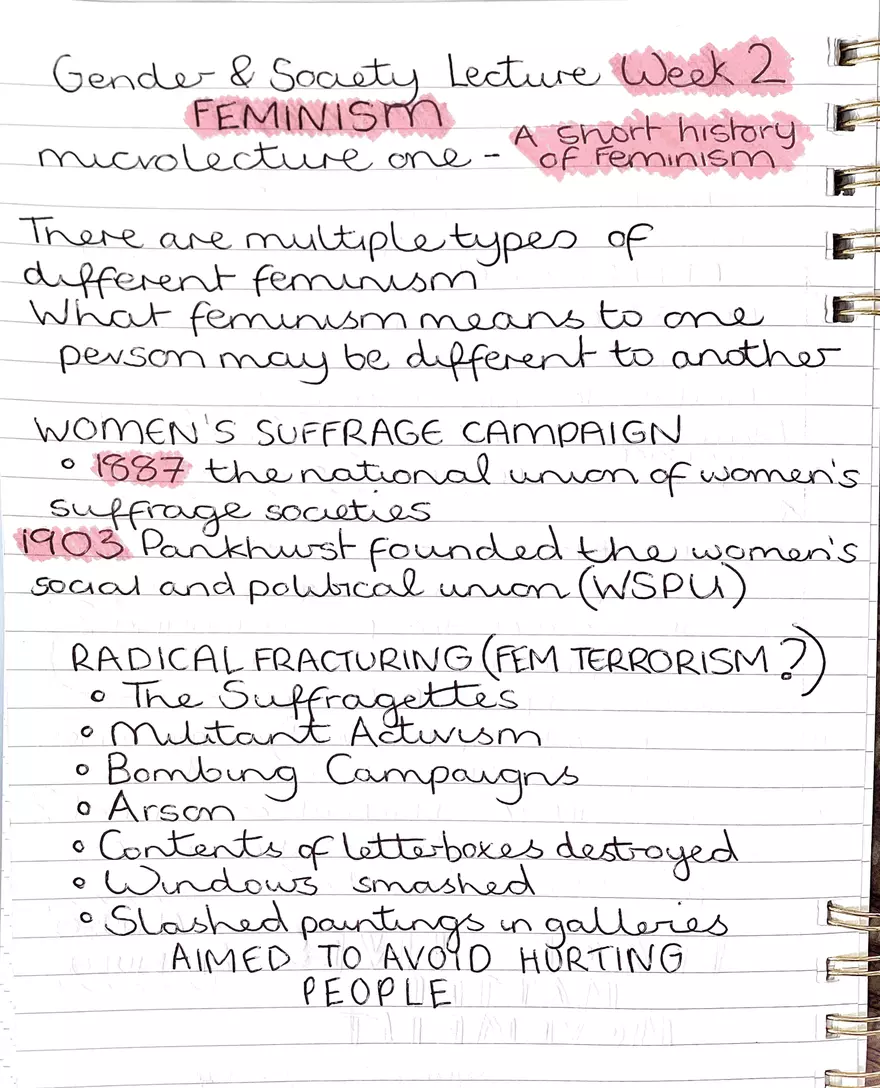 Gender & Society Lecture Week 2
FEMINISM
microlecture one - A short history
of Feminism
There are multiple types of
different feminism
What feminism means to one
person may be different to another
WOMEN'S SUFFRAGE CAMPAIGN
◦ 1887 the national union of women's
suffrage societies
1903 Pankhurst founded the women's
social and political union (WSPU)
RADICAL FRACTURING (FEM TERRORISM?)
◦ The Suffragettes
◦ Militant Activism
◦ Bombing Campaigns
◦ Arson
◦ Contents of letterboxes destroyed
◦ Windows smashed
◦ Slashed paintings in galleries
AIMED TO AVOID HURTING
PEOPLE